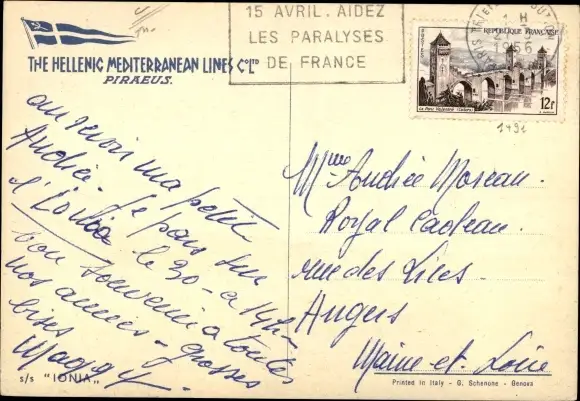 THE HELLENIC MEDITERRANEAN LINES Cº LTD
PIRAEUS.
15 AVRIL. AIDEZ
LES PARALYSES
DE FRANCE
1956
REPUBLIQUE FRANÇAISE
POSTES
Le Pont Valentré (Cahors)
12F
1491
au revoir ma petite
Andrée. Je pars sur
l'Ionia le 30 - a 14h -
bon souvenir a toutes
nos amies - grosses
bises
Maggy
s/s "IONIA"
Mme Andrée Moreau.
Royal Cadeau.
rue des Lices -
Angers
Maine-et-Loire
Printed in Italy - G. Schenone - Genova